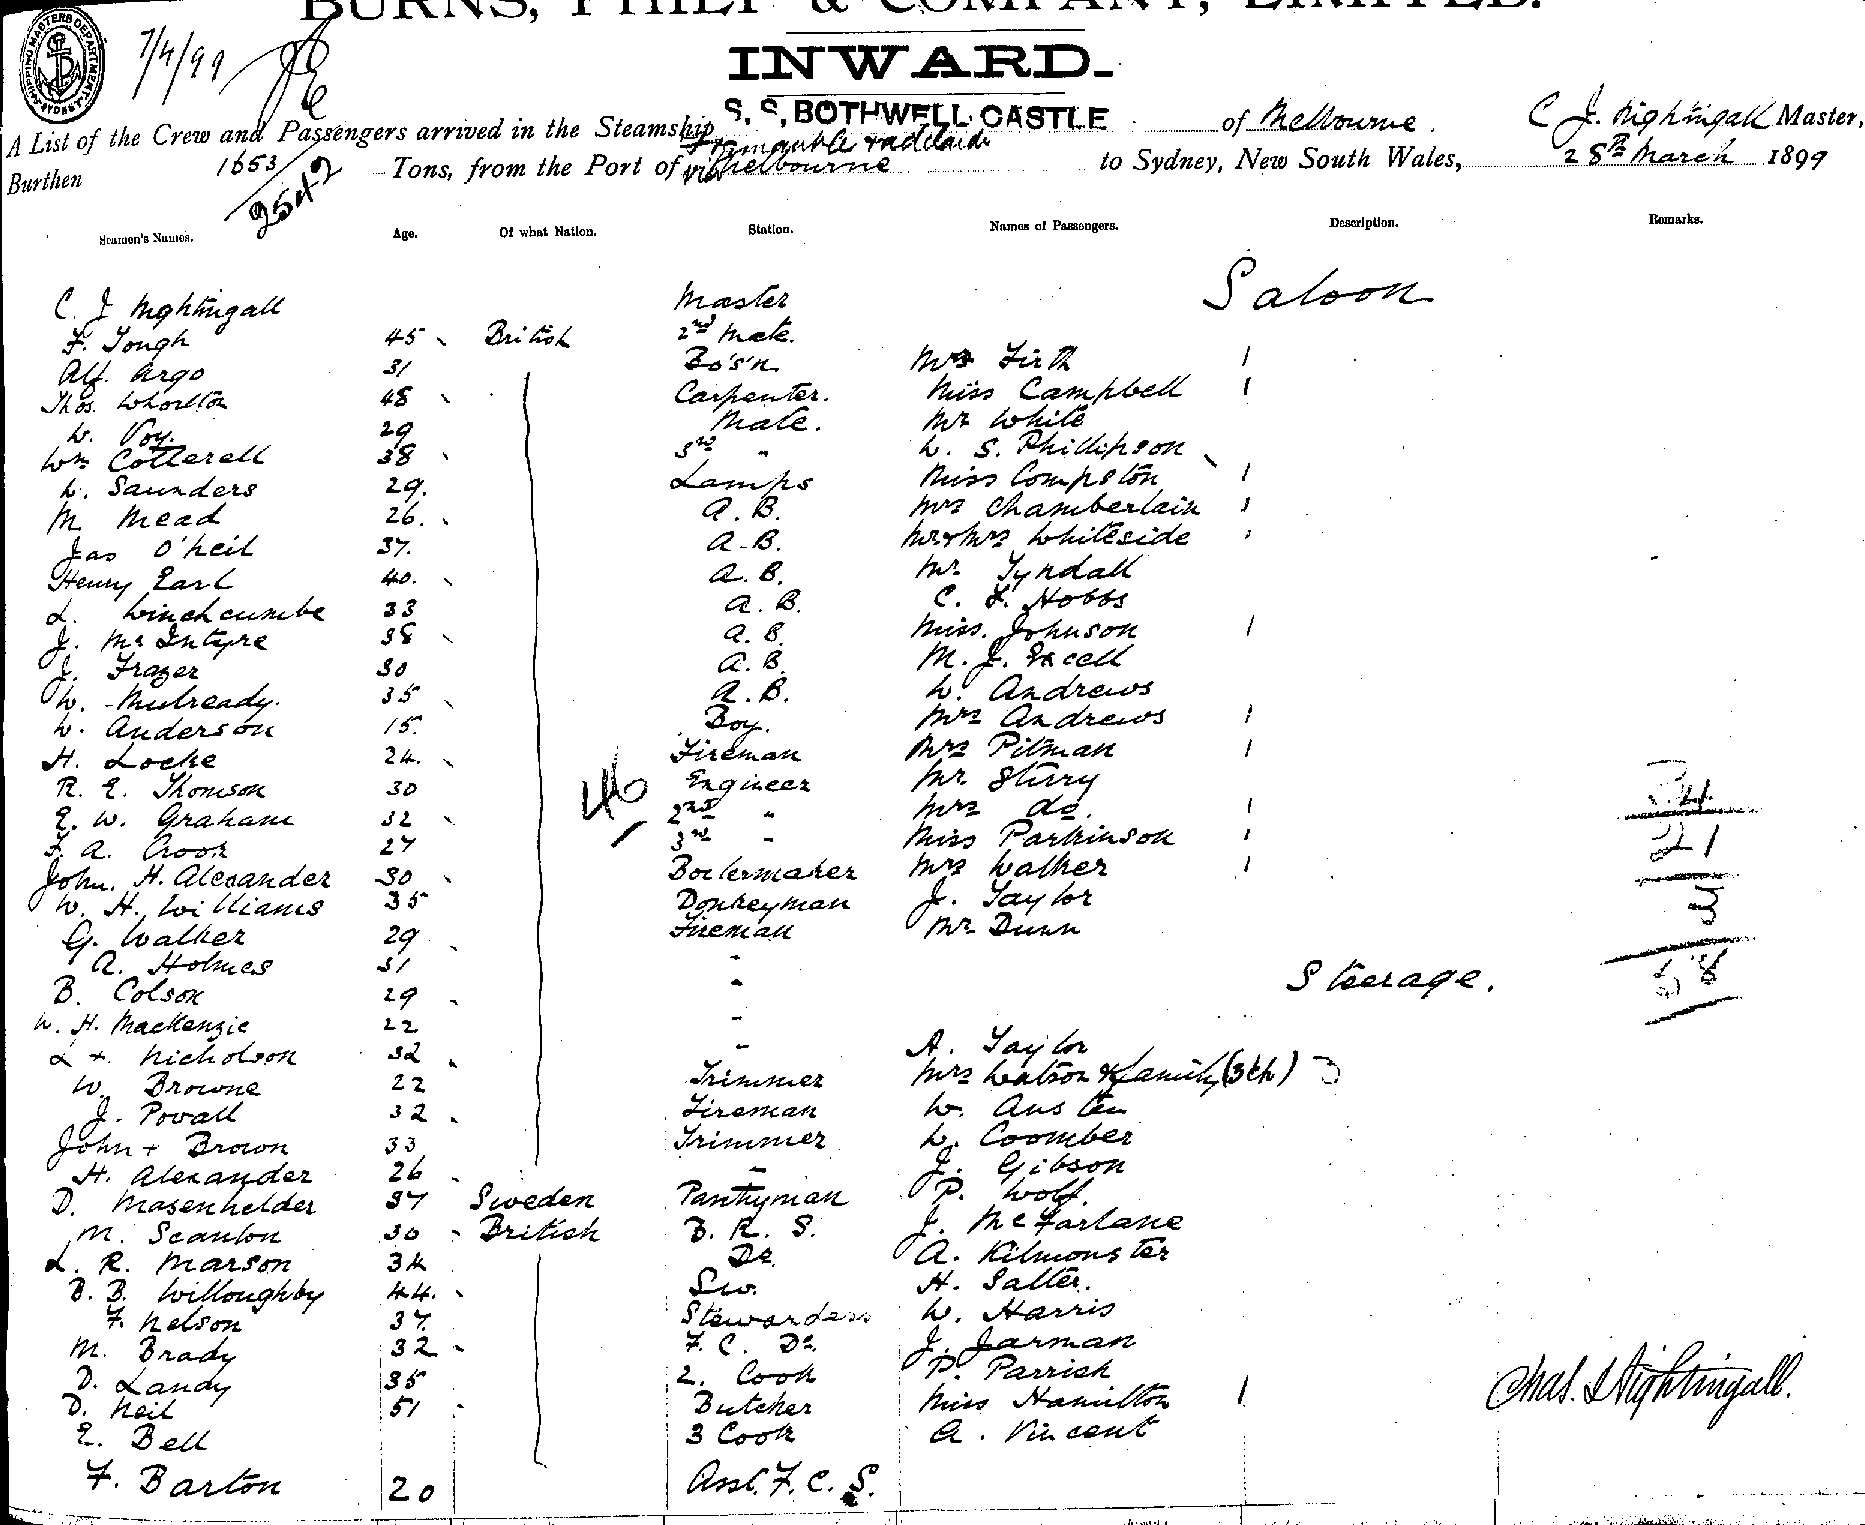 BURNS, PHILP & COMPANY, LIMITED.
INWARD.
7/4/99
S.S. BOTHWELL CASTLE
A List of the Crew and Passengers arrived in the Steamship of Melbourne. C J. Nightingall Master,
Burthen 1653/2542 Tons, from the Port of Fremantle Adelaide via Melbourne to Sydney, New South Wales, 28th March 1899
Seamen's Names. Age. Of what Nation. Station. Names of Passengers. Description. Remarks.
Saloon
C. J Nightingall Master
F. Tough 45 British 2nd Mate.
Alf. Argo 31 Bo's'n Mrs Firth 1
Thos. Whorlton 48 Carpenter. Miss Campbell 1
W. Voy. 29 Mate. Mr White
Wm Cotterell 38 3rd " W. S. Phillipson
W. Saunders 29. Lamps Miss Compston 1
M Mead 26. A.B. Mrs Chamberlain 1
Jas O'Neil 37. A.B. Mr & Mrs Whiteside 1
Henry Earl 40. A.B. Mr. Tyndall
L. Winchcumbe 33 A.B. C. F. Hobbs
J. McIntyre 38 A.B. Miss. Johnson 1
J. Frazer 30 A.B. M. J. Excell
W. Mulready. 35 A.B. W. Andrews
W. Anderson 15. Boy. Mrs Andrews 1
H. Locke 24. Fireman Mrs Pitman 1
R. E. Thomson 30 Engineer Mr Sturry
E. W. Graham 32 46 2nd " Mrs do. 1
F. A. Crook 27 3rd " Miss Parkinson 1 21
John. H. Alexander 30 Boilermaker Mrs Walker 1
W. H. Williams 35 Donkeyman J. Taylor 3
G. Walker 29 Fireman Mr Dunn
A. Holmes 31 "
Steerage.
B. Colson 29 "
W. H. Mackenzie 22 "
L + Nicholson 32 " A. Taylor
W. Browne 22 Trimmer Mrs Watson & family (3 ch) 3
J. Povall 32 Fireman W. Austen
John + Brown 33 Trimmer W. Coomber
H. Alexander 26 " J. Gibson
D. Masenhelder 37 Sweden Pantryman P. Wolf.
M. Scanlon 30 British B. R. S. J. McFarlane
L. R. Marson 34 Do. A. Kilmonster
B. B. Willoughby 44. Sw. H. Salter.
F. Nelson 37. Stewardess W. Harris
M. Brady 32 F. C. Do. J. Jarman
D. Landy 35 2. Cook P. Parrish
D. Neil 51 Butcher Miss Hamilton 1
E. Bell 3 Cook A. Vincent
F. Barton 20 Asst. F. C. S.
Chas. J Nightingall.